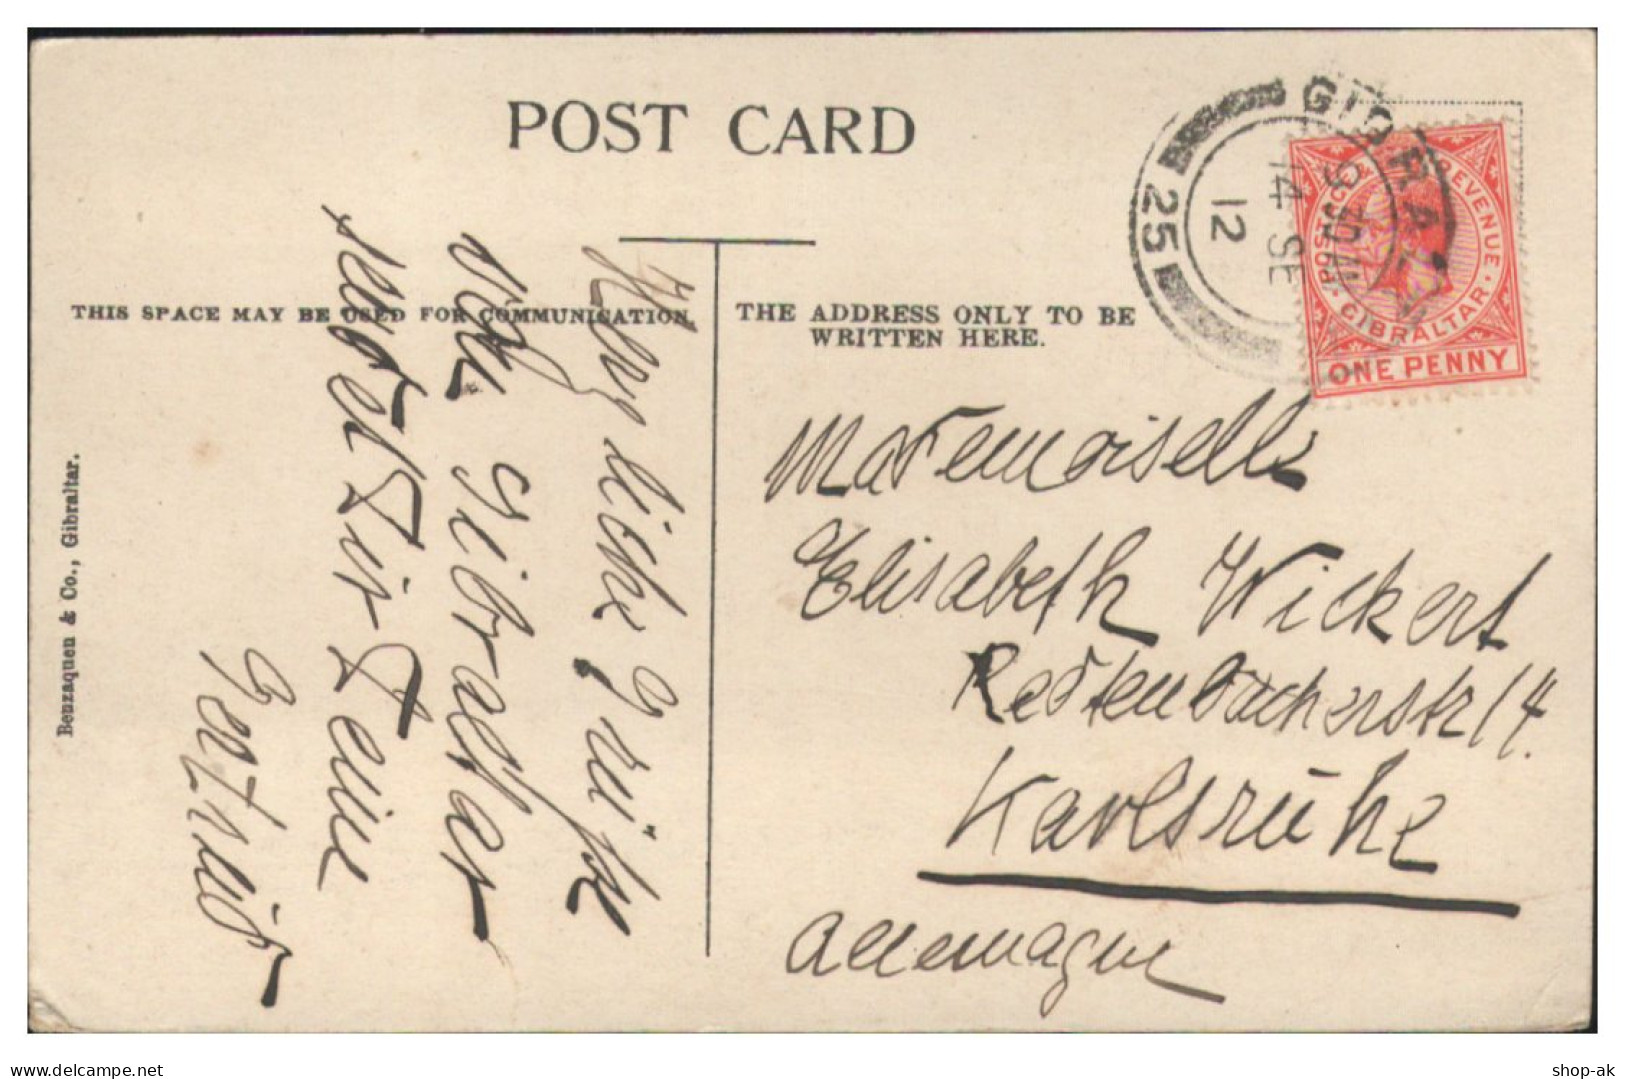 POST CARD
THIS SPACE MAY BE USED FOR COMMUNICATION.
THE ADDRESS ONLY TO BE
WRITTEN HERE.
Benzaquen & Co., Gibraltar.
Herzliche Grüsse
von Gibraltar
sendet Dir Deine
Gertrud
Mademoiselle
Elisabeth Wickert
Redtenbacherstr 14.
Karlsrühe
Allemagne
25
GIBRALTAR
9 30PM
14 SE
12
POSTAGE & REVENUE
GIBRALTAR
ONE PENNY
www.delcampe.net
shop-ak